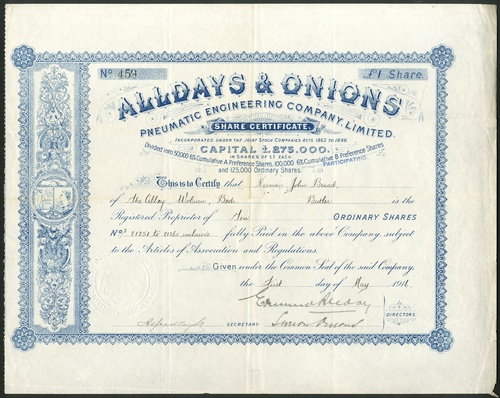 No 459
£1 Share
ALLDAYS & ONIONS
PNEUMATIC ENGINEERING COMPANY, LIMITED.
SHARE CERTIFICATE.
INCORPORATED UNDER THE JOINT STOCK COMPANIES ACTS 1862 TO 1886.
CAPITAL £275,000.
IN SHARES OF £1 EACH
Divided into 50,000 6% Cumulative A Preference Shares, 100,000 6% Cumulative B Preference Shares
PARTICIPATING
and 125,000 Ordinary Shares.
This is to Certify that Norman John
of The Abbey, Woburn, Beds Butler is the
Registered Proprietor of Ten ORDINARY SHARES
Nos inclusive fully Paid in the above Company, subject
to the Articles of Association and Regulations.
Given under the Common Seal of the said Company,
the First day of May 1916
DIRECTORS.
SECRETARY